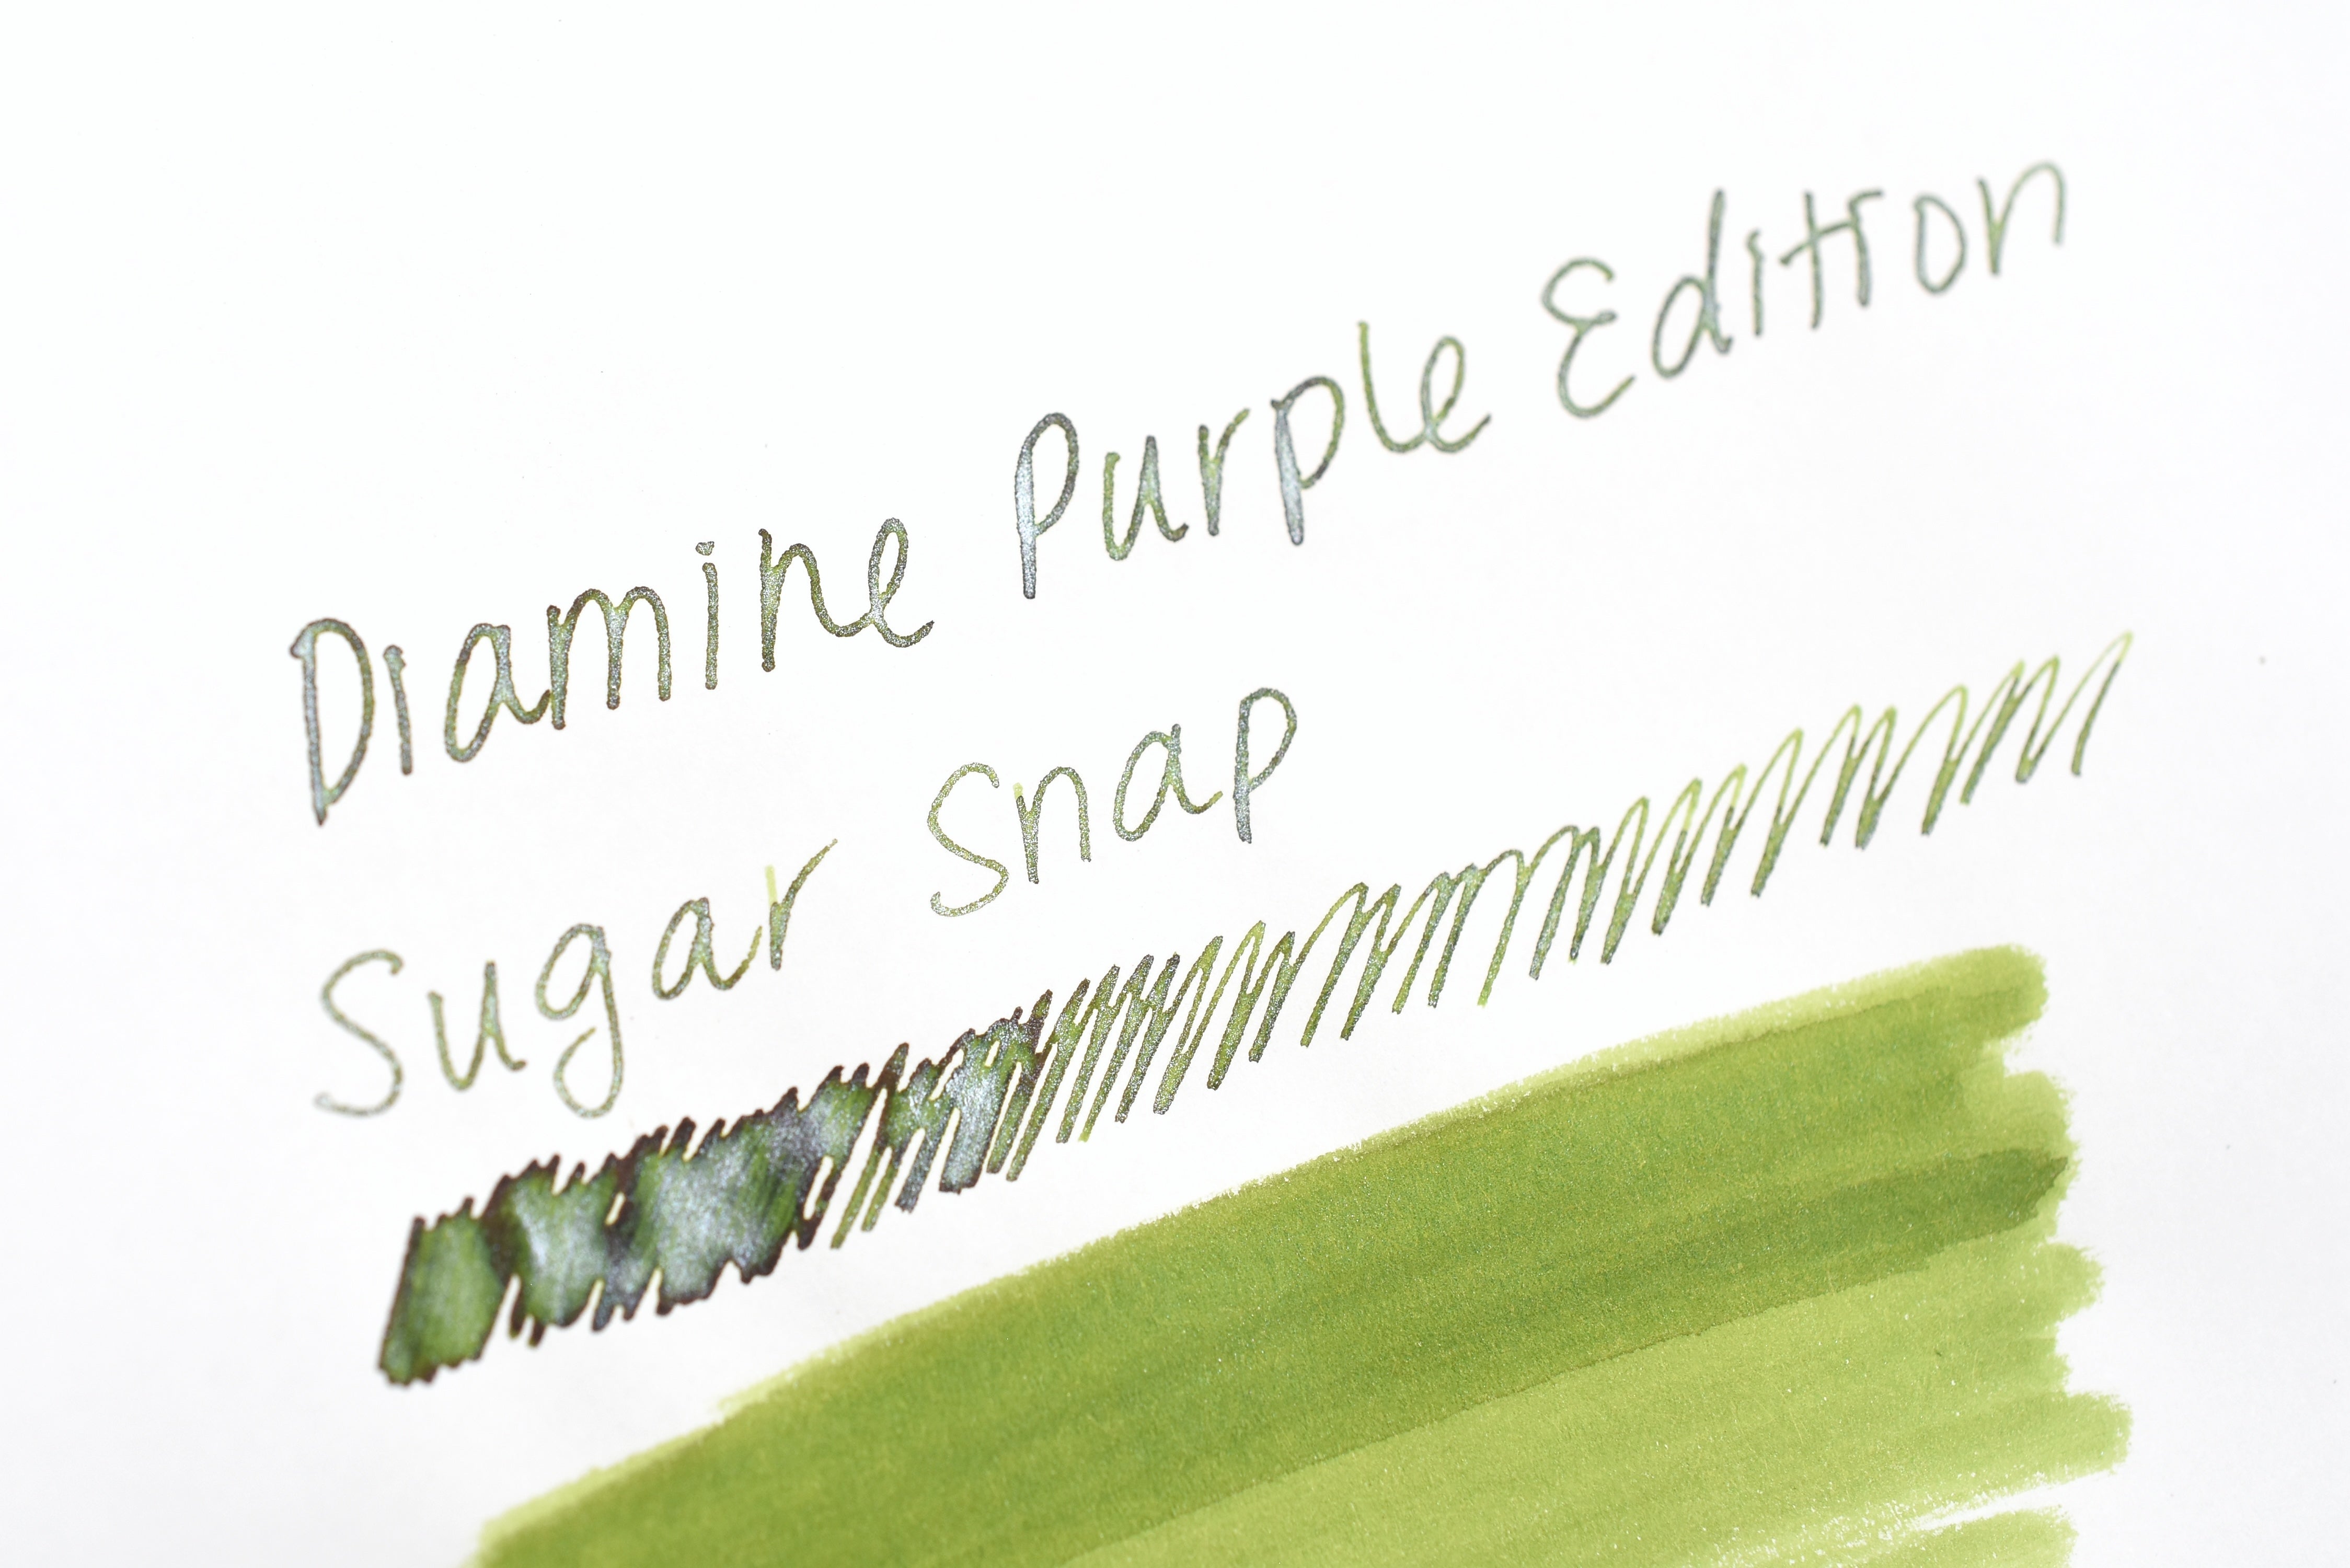 Diamine Purple Edition
Sugar Snap